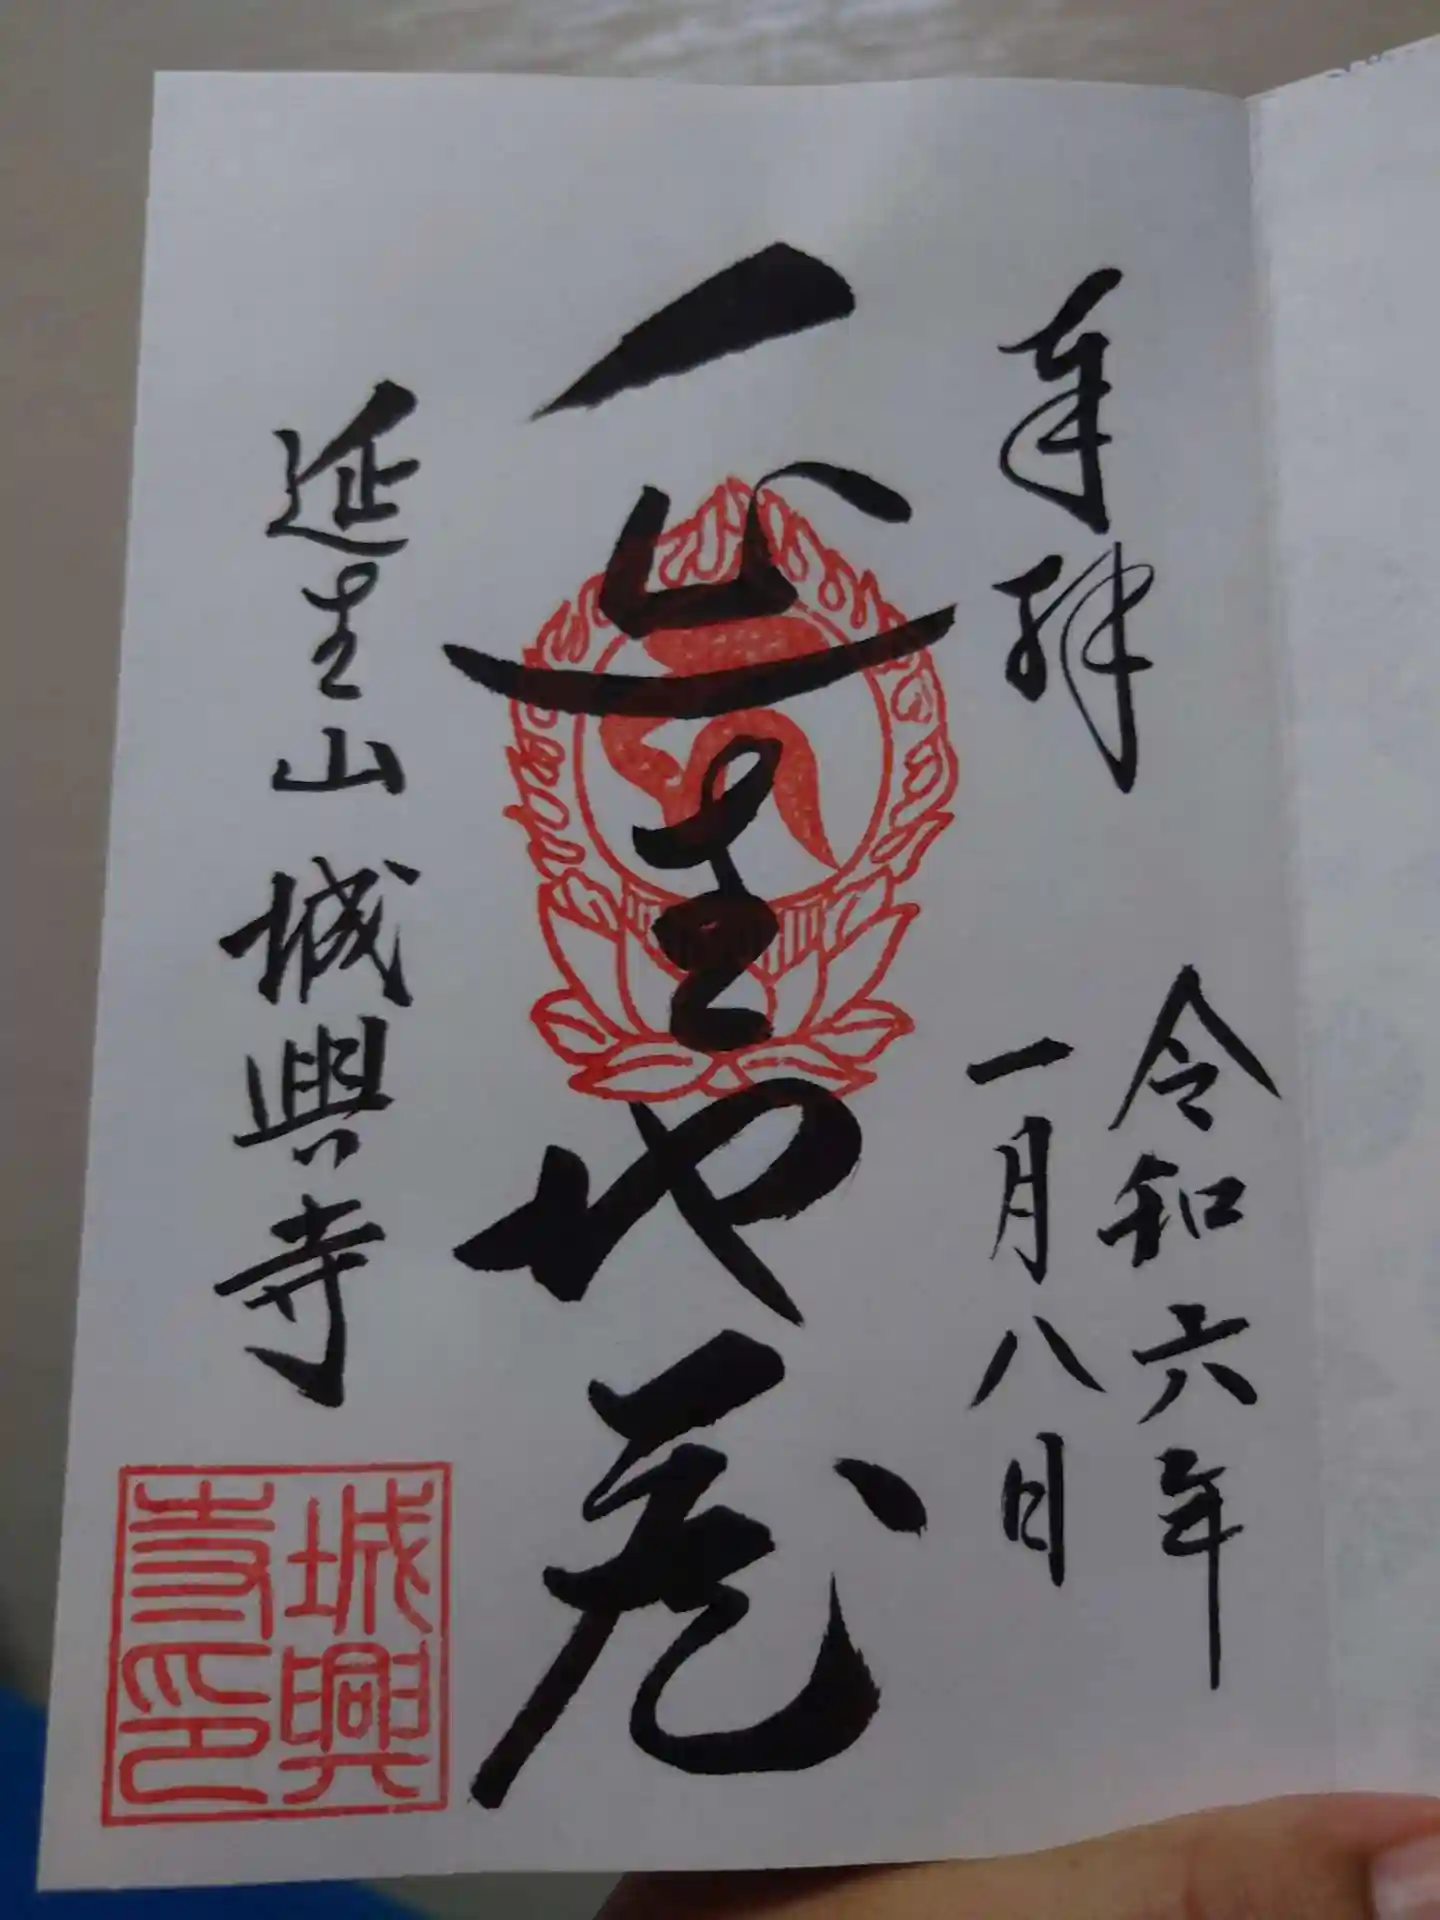 奉拝
令和六年
一月八日
延生地蔵
延生山 城興寺
城興
寺印